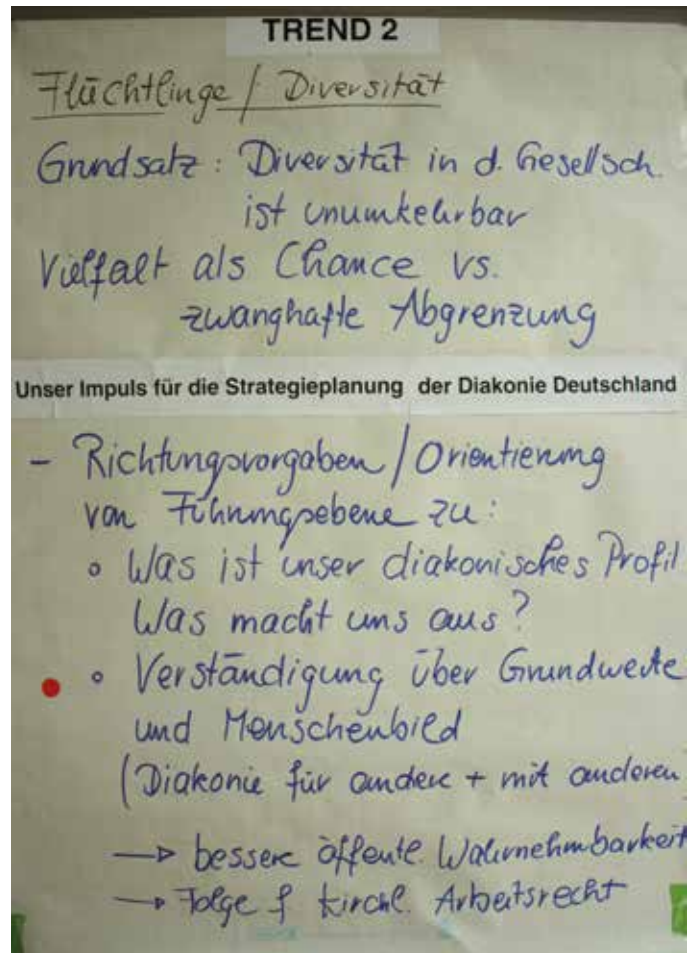 TREND 2
Flüchtlinge / Diversität
Grundsatz: Diversität in d. Gesellsch.
ist unumkehrbar
Vielfalt als Chance vs.
zwanghafte Abgrenzung
Unser Impuls für die Strategieplanung der Diakonie Deutschland
- Richtungsvorgaben / Orientierung
von Führungsebene zu:
o Was ist unser diakonisches Profil
Was macht uns aus?
o Verständigung über Grundwerte
und Menschenbild
(Diakonie für andere + mit anderen
→ bessere öffentl. Wahrnehmbarkeit
→ Folge f kirchl. Arbeitsrecht